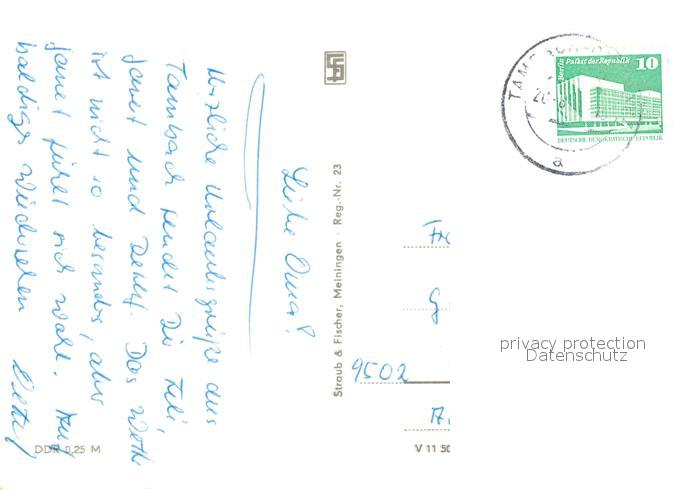 Liebe Oma!
Herzliche Urlaubsgrüße aus
Tambach sendet Dir
Janet und Detlef. Das Wett
ist nicht so besonders, aber
Janet fühlt sich wohl. Auf
baldiges Wiedersehen Detlef
DDR 0,25 M
Straub & Fischer, Meiningen · Reg.-Nr. 23
V 11 50
9502
10
Berlin Palast der Republik
DEUTSCHE DEMOKRATISCHE REPUBLIK
a
privacy protection
Datenschutz